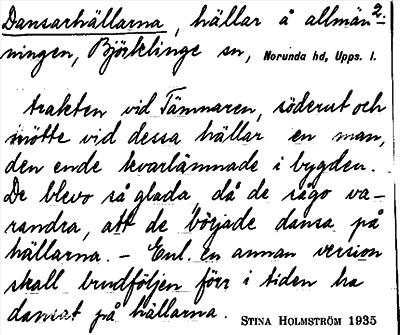 Dansarhällarna, hällar å allmän- 2.
ningen, Björklinge sn, Norunda hd, Upps. l.
trakten vid Tämnaren, söderut och
mötte vid dessa hällar en man,
den ende kvarlämnade i bygden.
De blevo så glada då de sågo va-
randra, att de började dansa på
hällarna. – Enl. en annan version
skall brudföljen förr i tiden ha
dansat på hällarna. STINA HOLMSTRÖM 1935